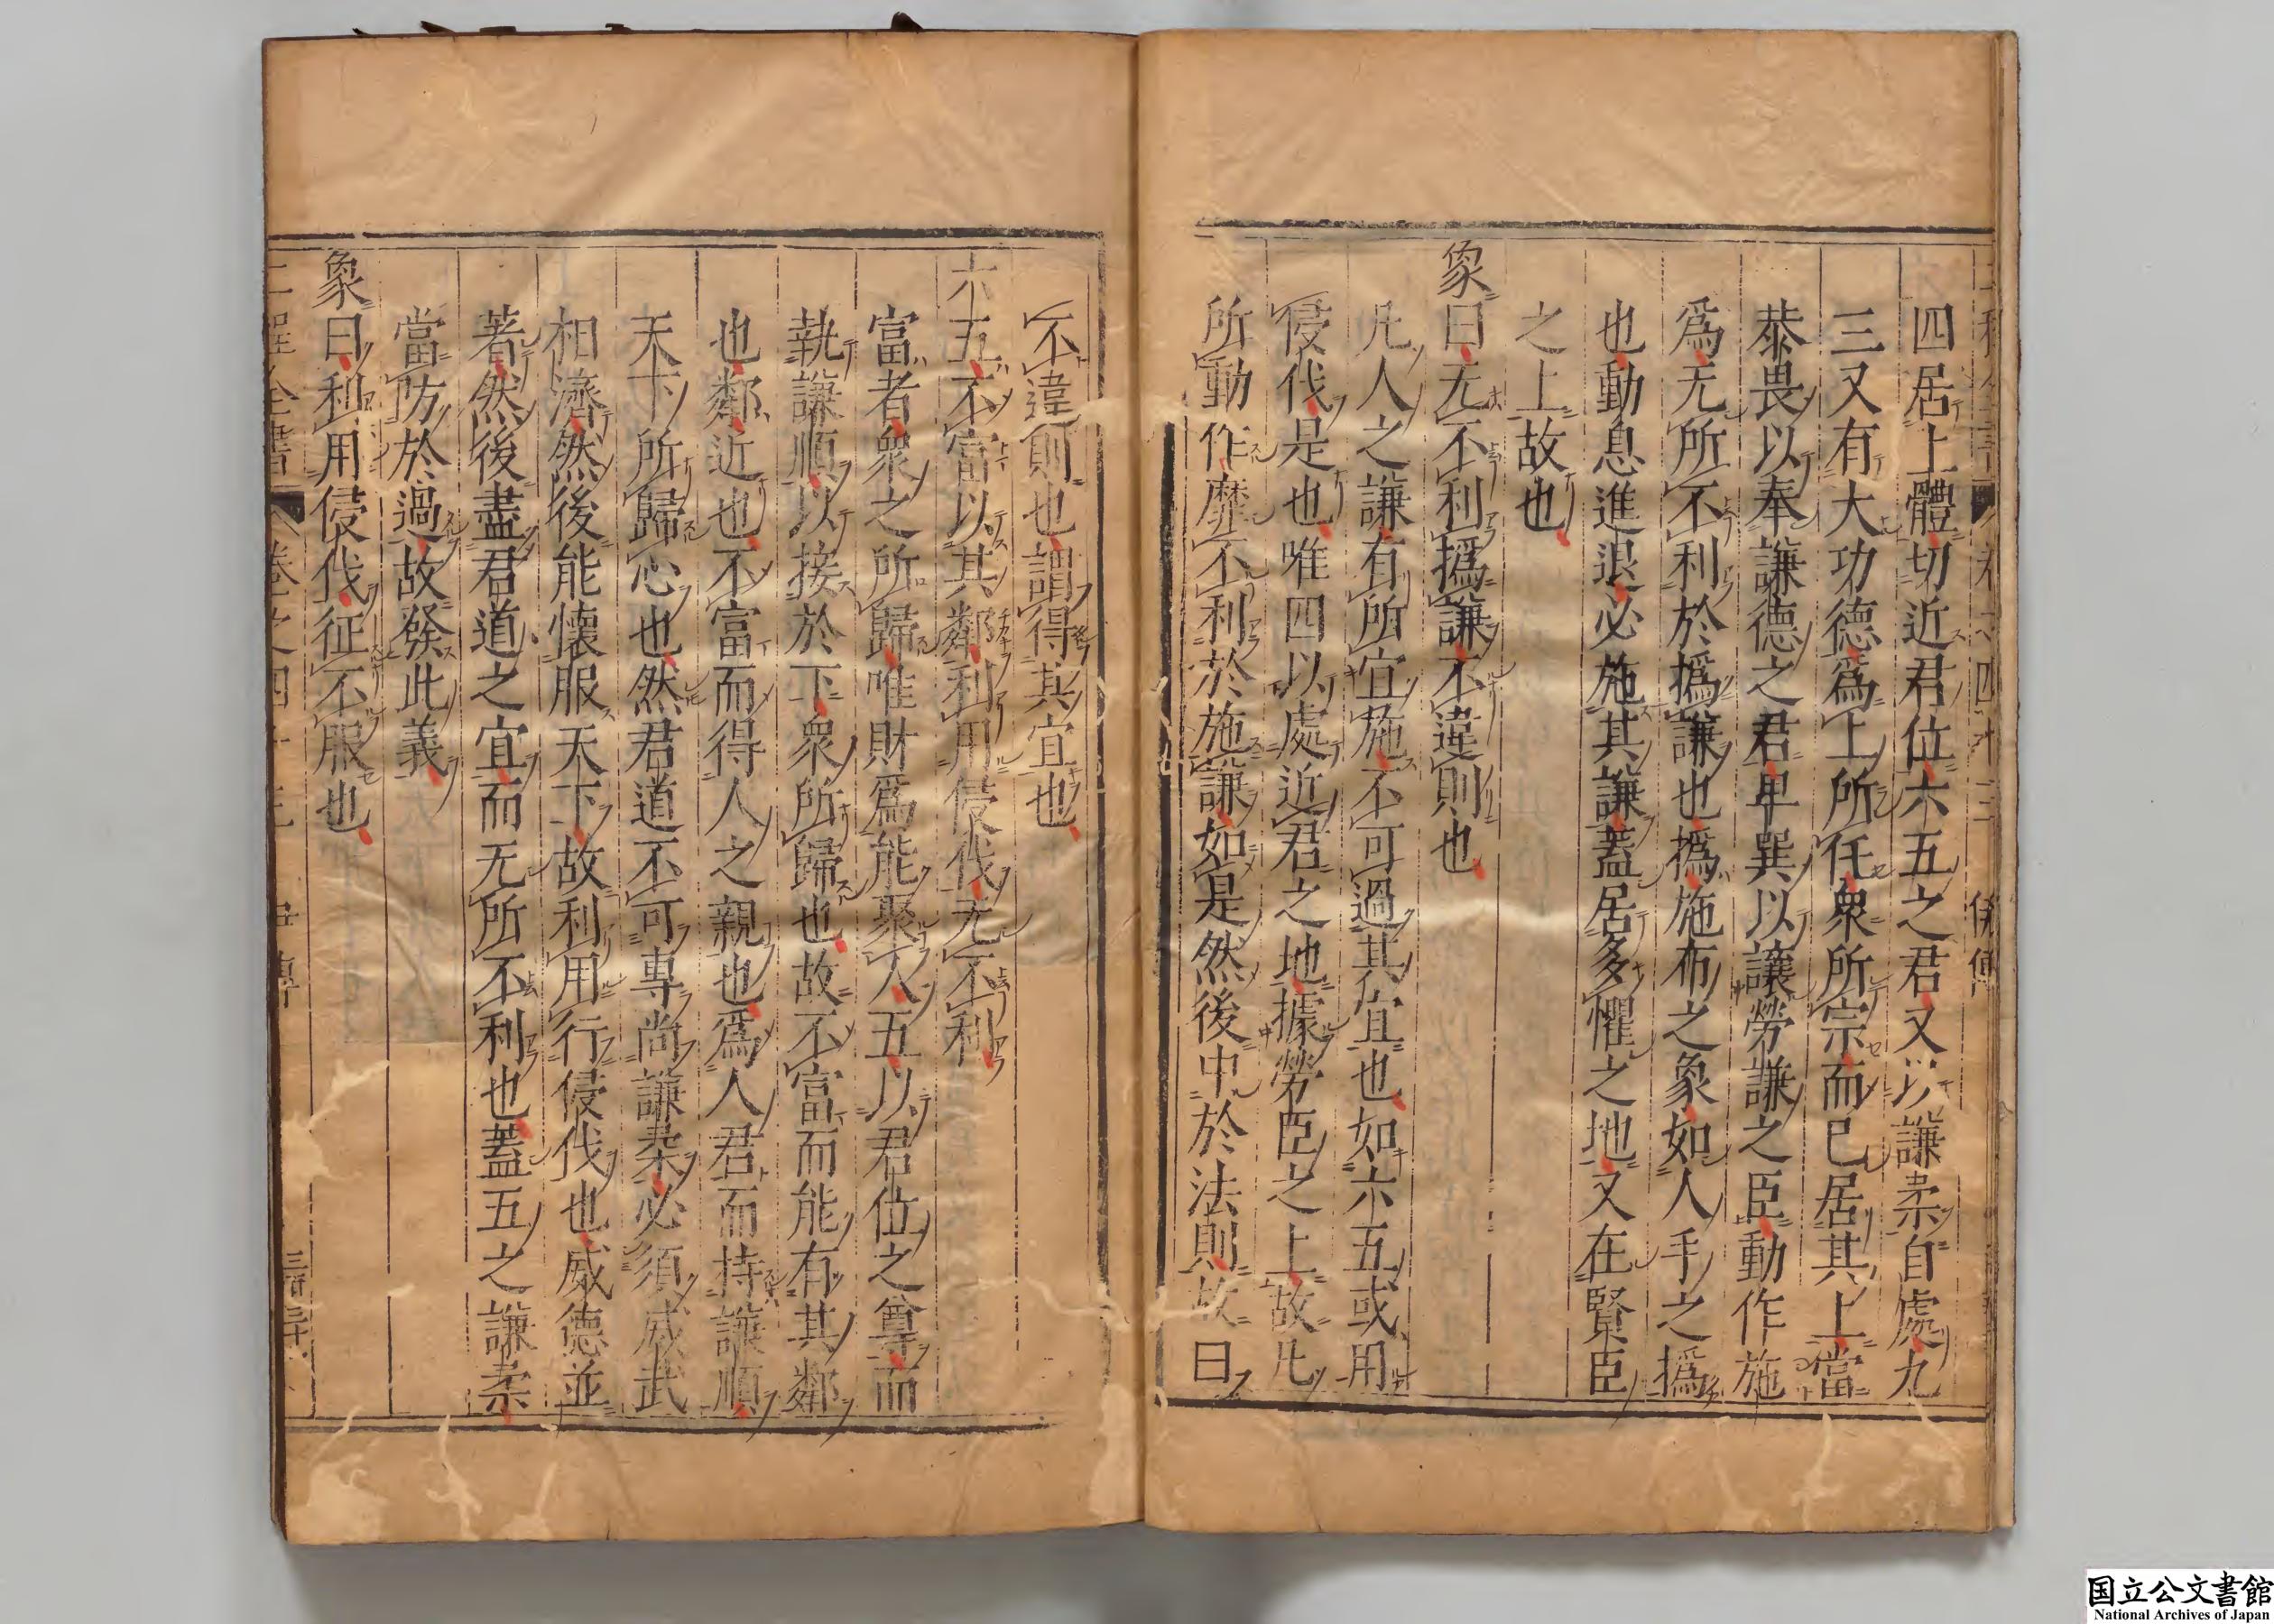 四居上體切近君位六五之君又以謙柔自處九
三又有大功德爲上所任衆所宗而已居其上當
恭畏以奉謙德之君卑巽以讓勞謙之臣動作施
爲无所不利於撝謙也撝施布之象如人手之撝
也動息進退必施其謙蓋居多懼之地又在賢臣
之上故也
象曰无不利撝謙不違則也
凡人之謙有所宜施不可過其宜也如六五或用
侵伐是也唯四以處近君之地據勞臣之上故凡
所動作靡不利於施謙如是然後中於法則故曰
不違則也謂得其宜也
六五不富以其鄰利用侵伐无不利
富者衆之所歸唯財爲能聚人五以君位之尊而
執謙順以接於下衆所歸也故不富而能有其鄰
也鄰近也不富而得人之親也爲人君而持謙順
天下所歸心也然君道不可專尚謙柔必須威武
相濟然後能懷服天下故利用行侵伐也威德並
著然後盡君道之宜而无所不利也蓋五之謙柔
當防於過故發此義
象曰利用侵伐征不服也
二程全書 卷之四十三
国立公文書館
National Archives of Japan